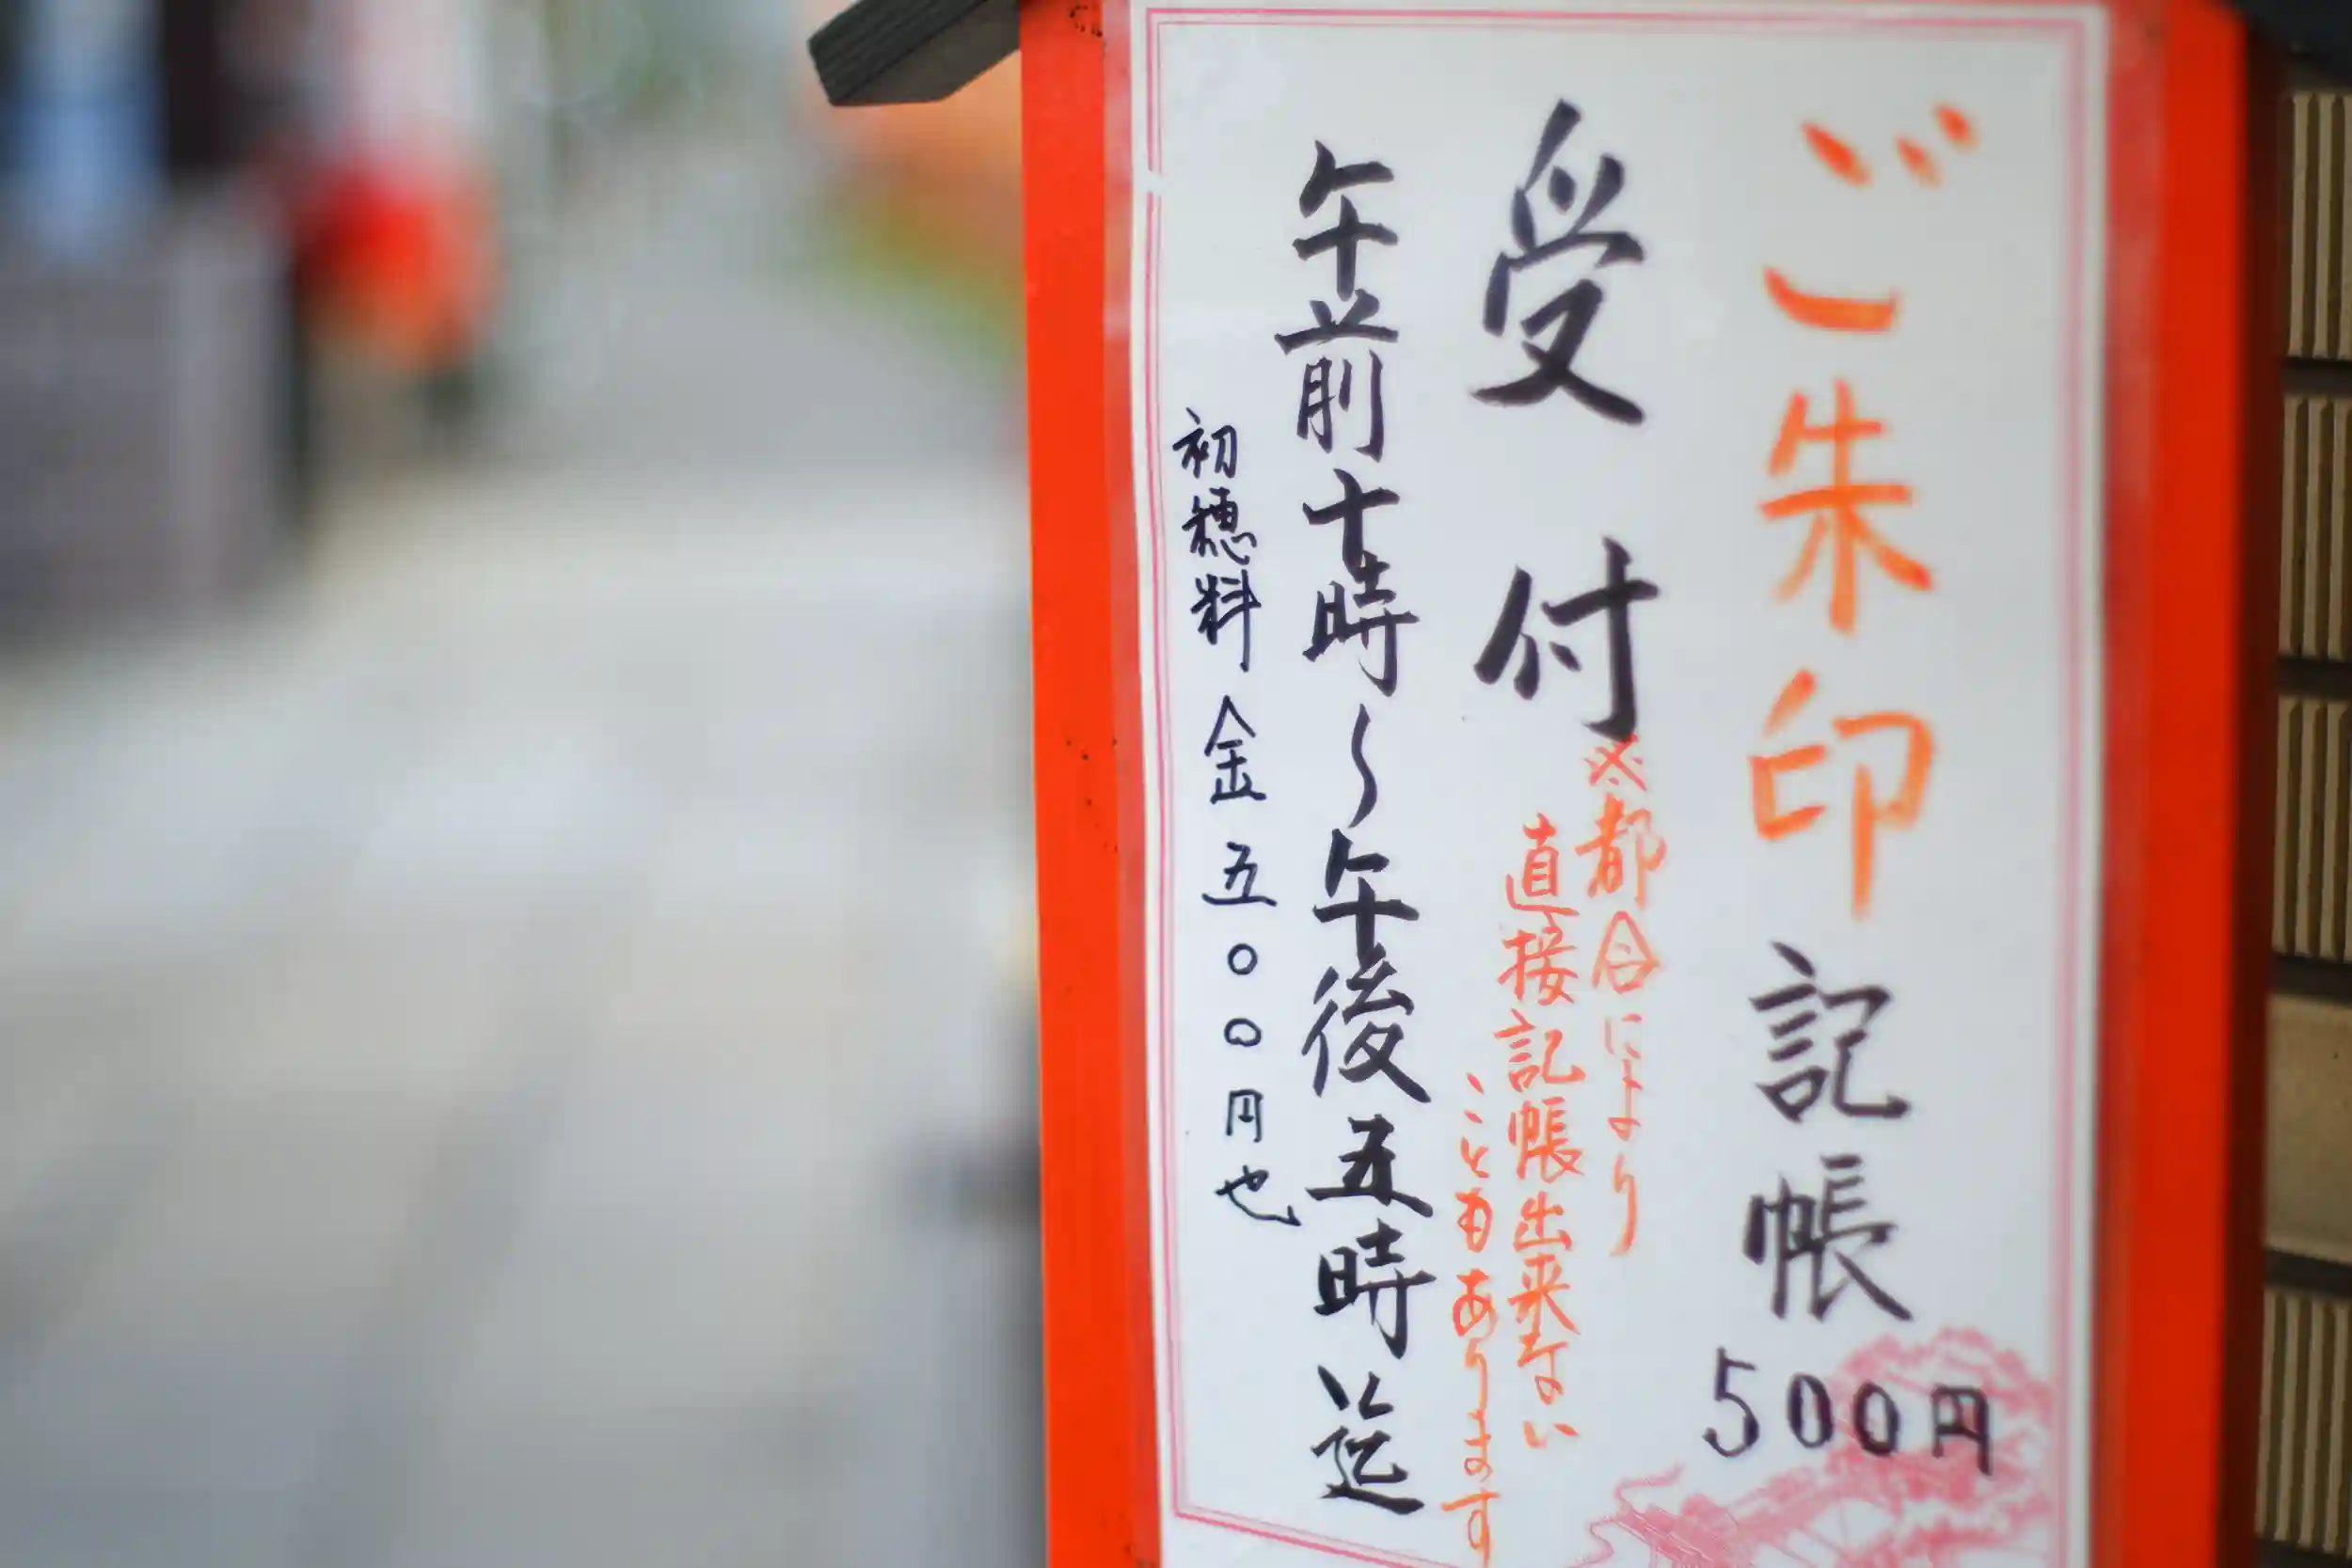 ご朱印記帳
500円
受付
※都合により
直接記帳出来ない
こともあります
午前十時～午後五時迄
初穂料 金 五〇〇円也